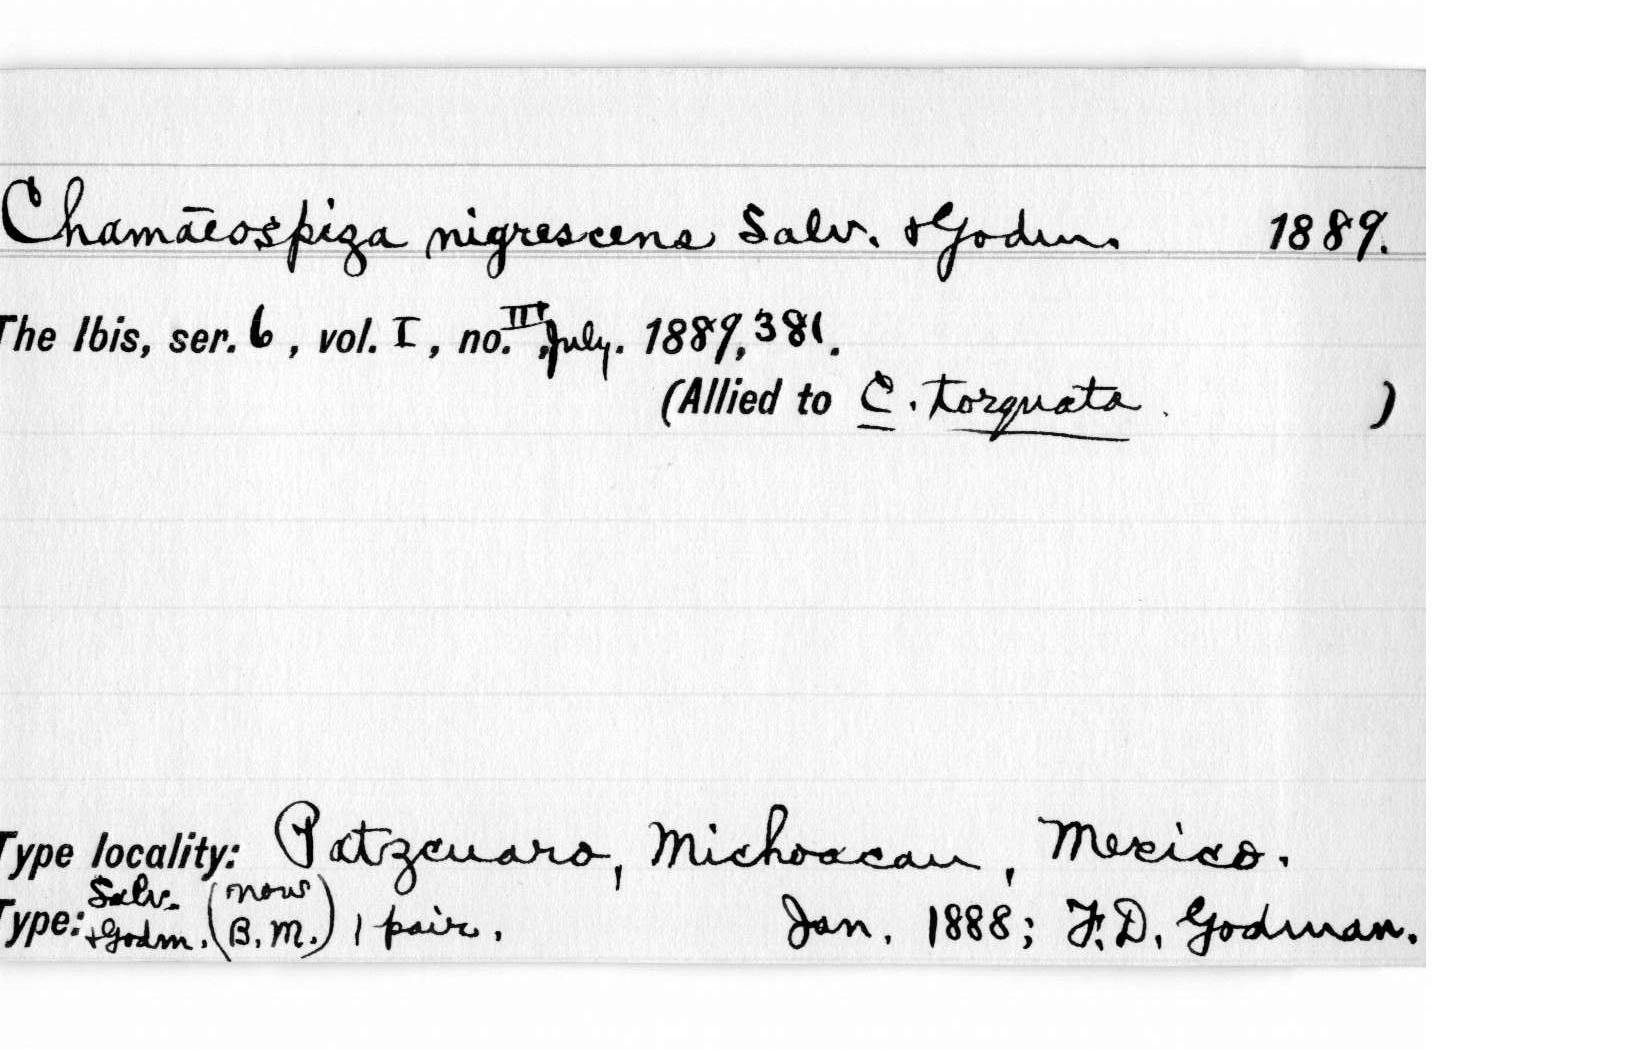 Chamaeospiza nigrescens Salv. & Godm. 1889.
The Ibis, ser. 6, vol. I, no. III, July. 1889, 381.
(Allied to C. torquata. )
Type locality: Patzcuaro, Michoacan, Mexico.
Type: Salv. & Godm. (now B.M.) 1 pair. Jan. 1888; F.D. Godman.